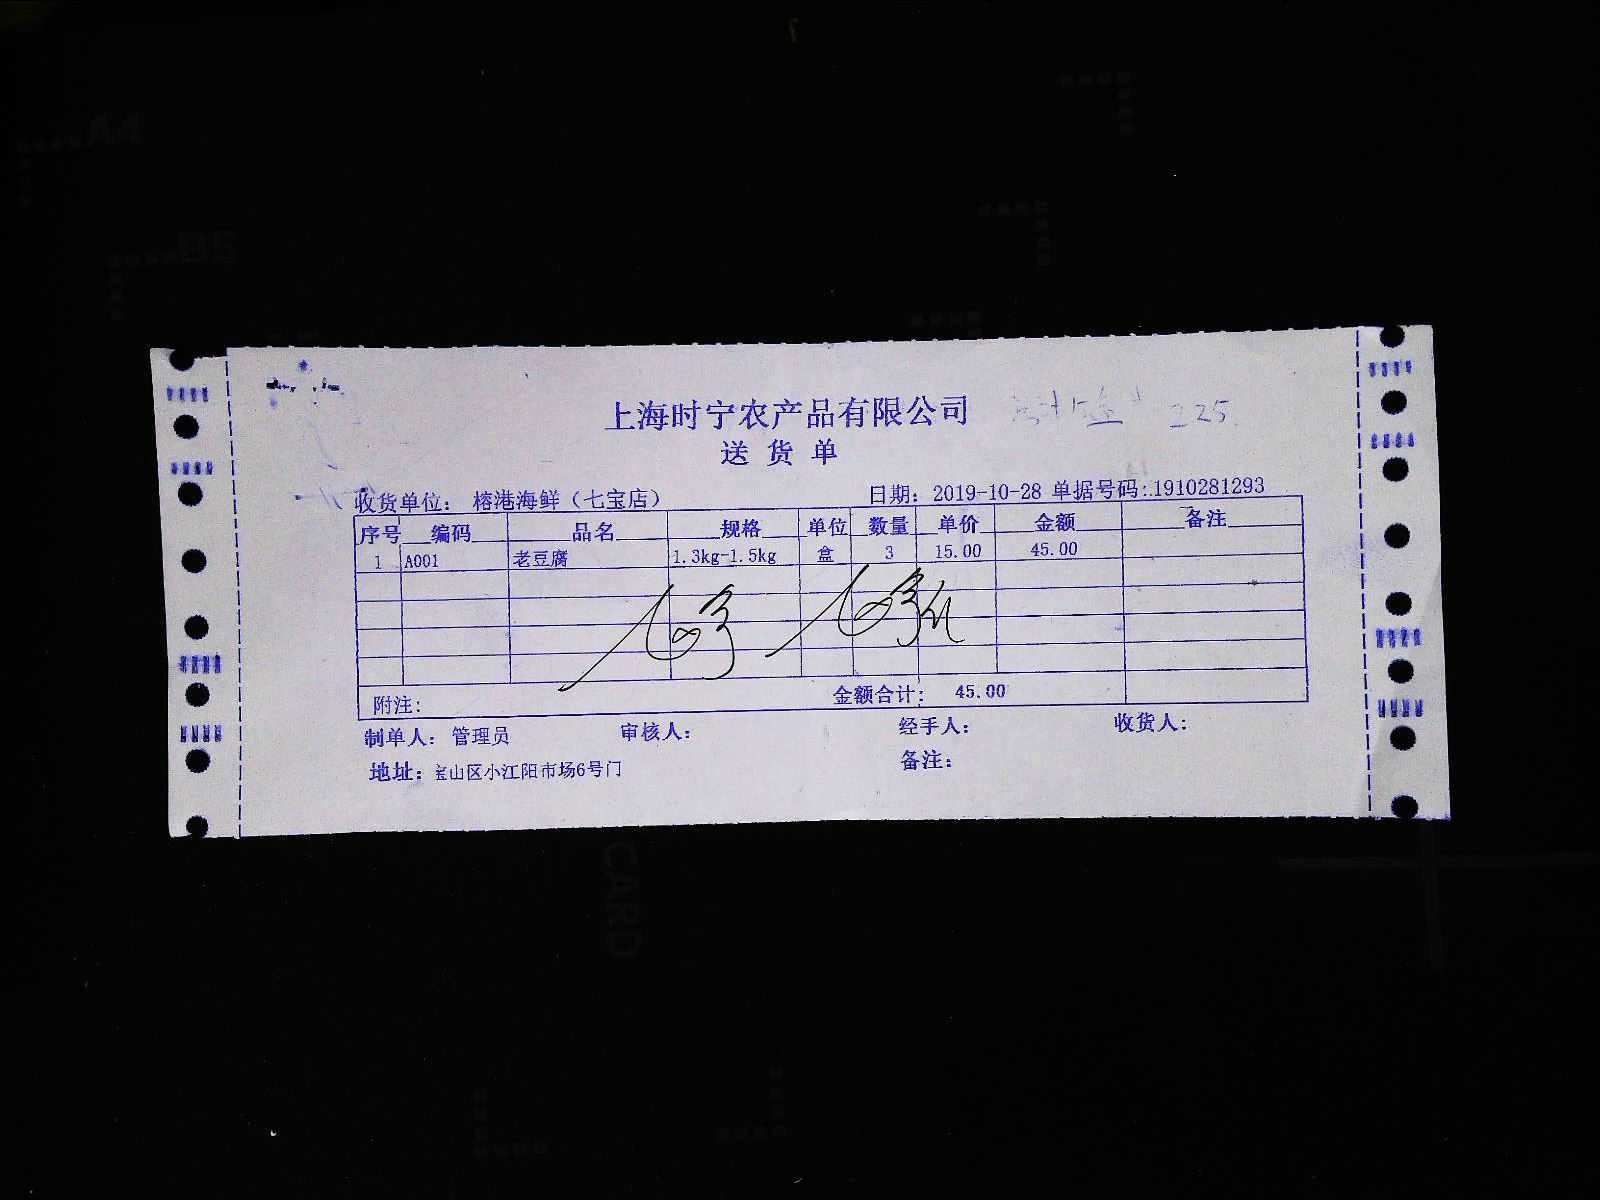 A4
B5
上海时宁农产品有限公司 225
送货单
收货单位: 榕港海鲜（七宝店） 日期: 2019-10-28 单据号码:.1910281293
序号 编码 品名 规格 单位 数量 单价 金额 备注
1 A001 老豆腐 1.3kg-1.5kg 盒 3 15.00 45.00
附注: 金额合计: 45.00
制单人: 管理员 审核人: 经手人: 收货人:
地址: 宝山区小江阳市场6号门 备注:
CARD